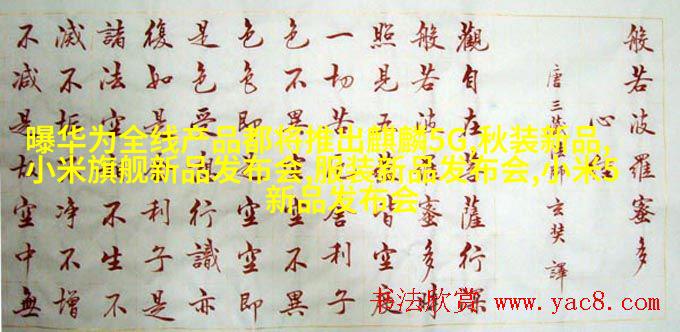 般若波羅蜜多
心經
唐三藏法師玄奘譯
觀自在菩薩行深
般若波羅蜜多時
照見五皆空度
一切苦舍利子
色不異空不異
色色即空空即
是色受行識亦
復如是利子是
諸法空不生不
滅不垢淨不增
不減是空中無
曝华为全线产品都将推出麒麟5G,秋装新品,
小米旗舰新品发布会,服装新品发布会,小米5
新品发布会
书法欣赏 www.yac8.com